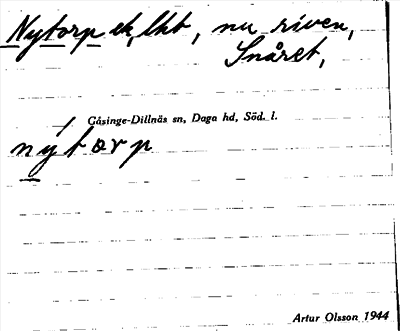 Nytorp ek, lht, nu riven,
Snåret,
Gåsinge-Dillnäs sn, Daga hd, Söd. l.
nytorp
Artur Olsson 1944